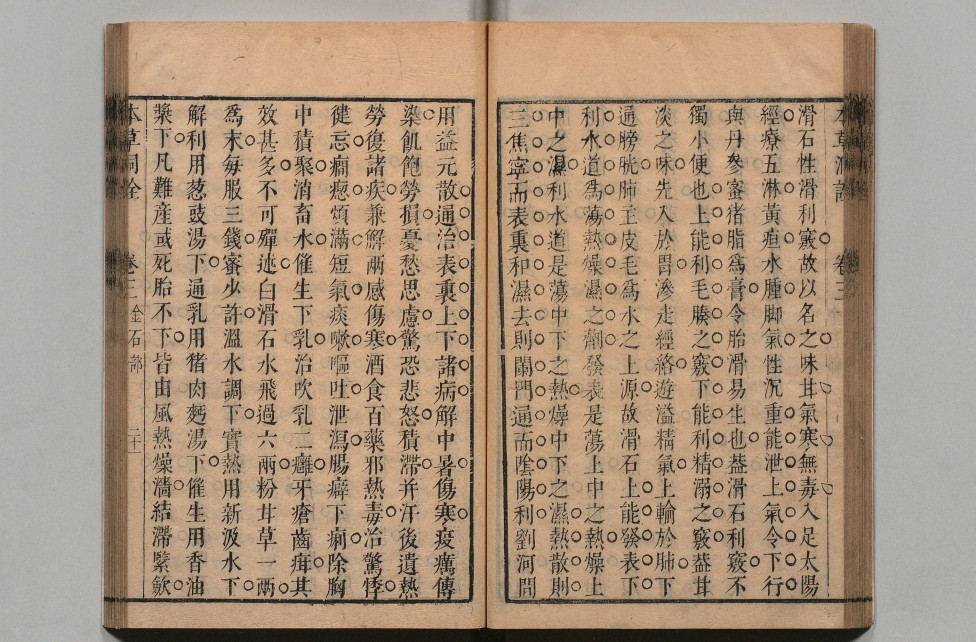 滑石性滑利竅故以名之味甘氣寒無毒入足太陽
經療五淋黃疸水腫脚氣性沉重能泄上氣令下行
與丹參蜜猪脂爲膏令胎滑易生也葢滑石利竅不
獨小便也上能利毛腠之竅下能利精溺之竅葢甘
淡之味先入於胃滲走經絡遊溢精氣上輸於肺下
通膀胱肺主皮毛爲水之上源故滑石上能發表下
利水道爲蕩熱燥濕之劑發表是蕩上中之熱燥上
中之濕利水道是蕩中下之熱燥中下之濕熱散則
三焦寧而表裏和濕去則闌門通而陰陽利劉河間
用益元散通治表裏上下諸病解中暑傷寒疫癘傳
染飢飽勞損憂愁思慮驚恐悲怒積滯并汗後遺熱
勞復諸疾兼解兩感傷寒酒食百藥邪熱毒治驚悸
健忘癎瘛煩滿短氣痰嗽嘔吐泄瀉腸癖下痢除胸
中積聚消畜水催生下乳治吹乳二癰牙瘡齒疳其
效甚多不可殫述白滑石水飛過六兩粉甘草一兩
爲末每服三錢蜜少許溫水調下實熱用新汲水下
解利用葱豉湯下通乳用猪肉麪湯下催生用香油
漿下凡難産或死胎不下皆由風熱燥濇結滯緊歛
本草詞詮 卷三 金石部